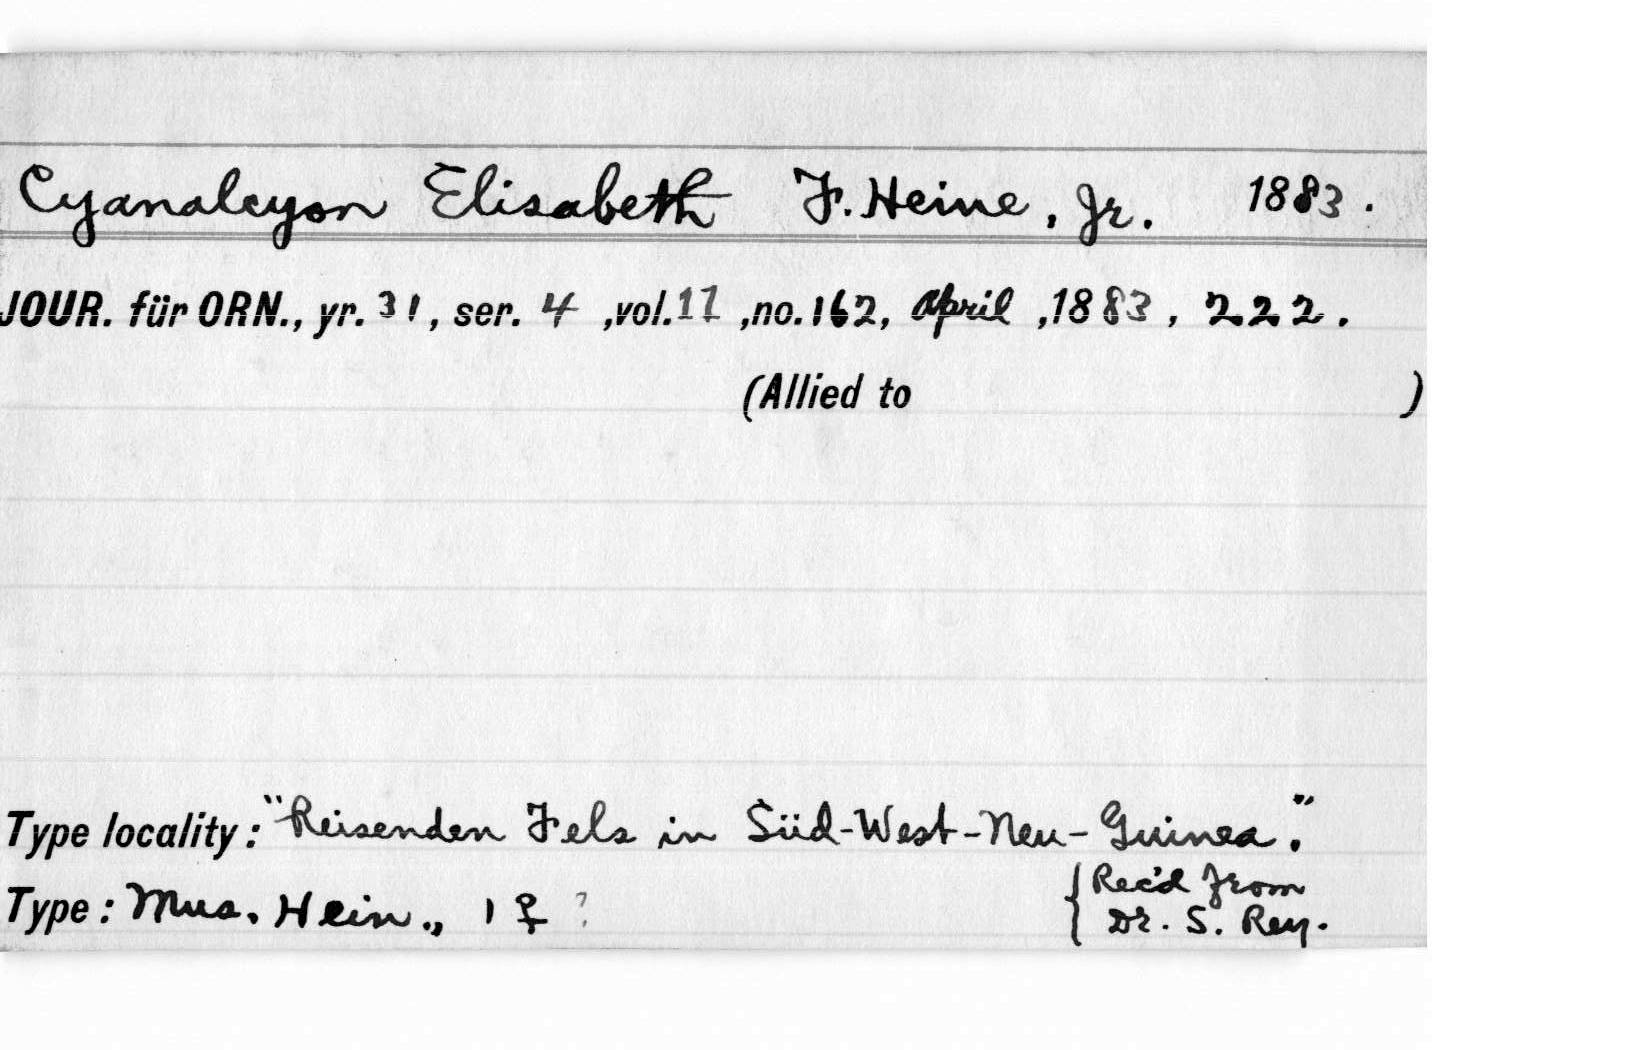 Cyanalcyon Elisabeth F. Heine, Jr. 1883.
JOUR. für ORN., yr. 31, ser. 4 ,vol. 11 ,no. 162, April ,1883 , 222.
(Allied to )
Type locality: "Reisenden Fels in Süd-West-Neu-Guinea."
Type: Mus. Hein., 1 ♀ ? { Rec'd from
Dr. S. Rey.